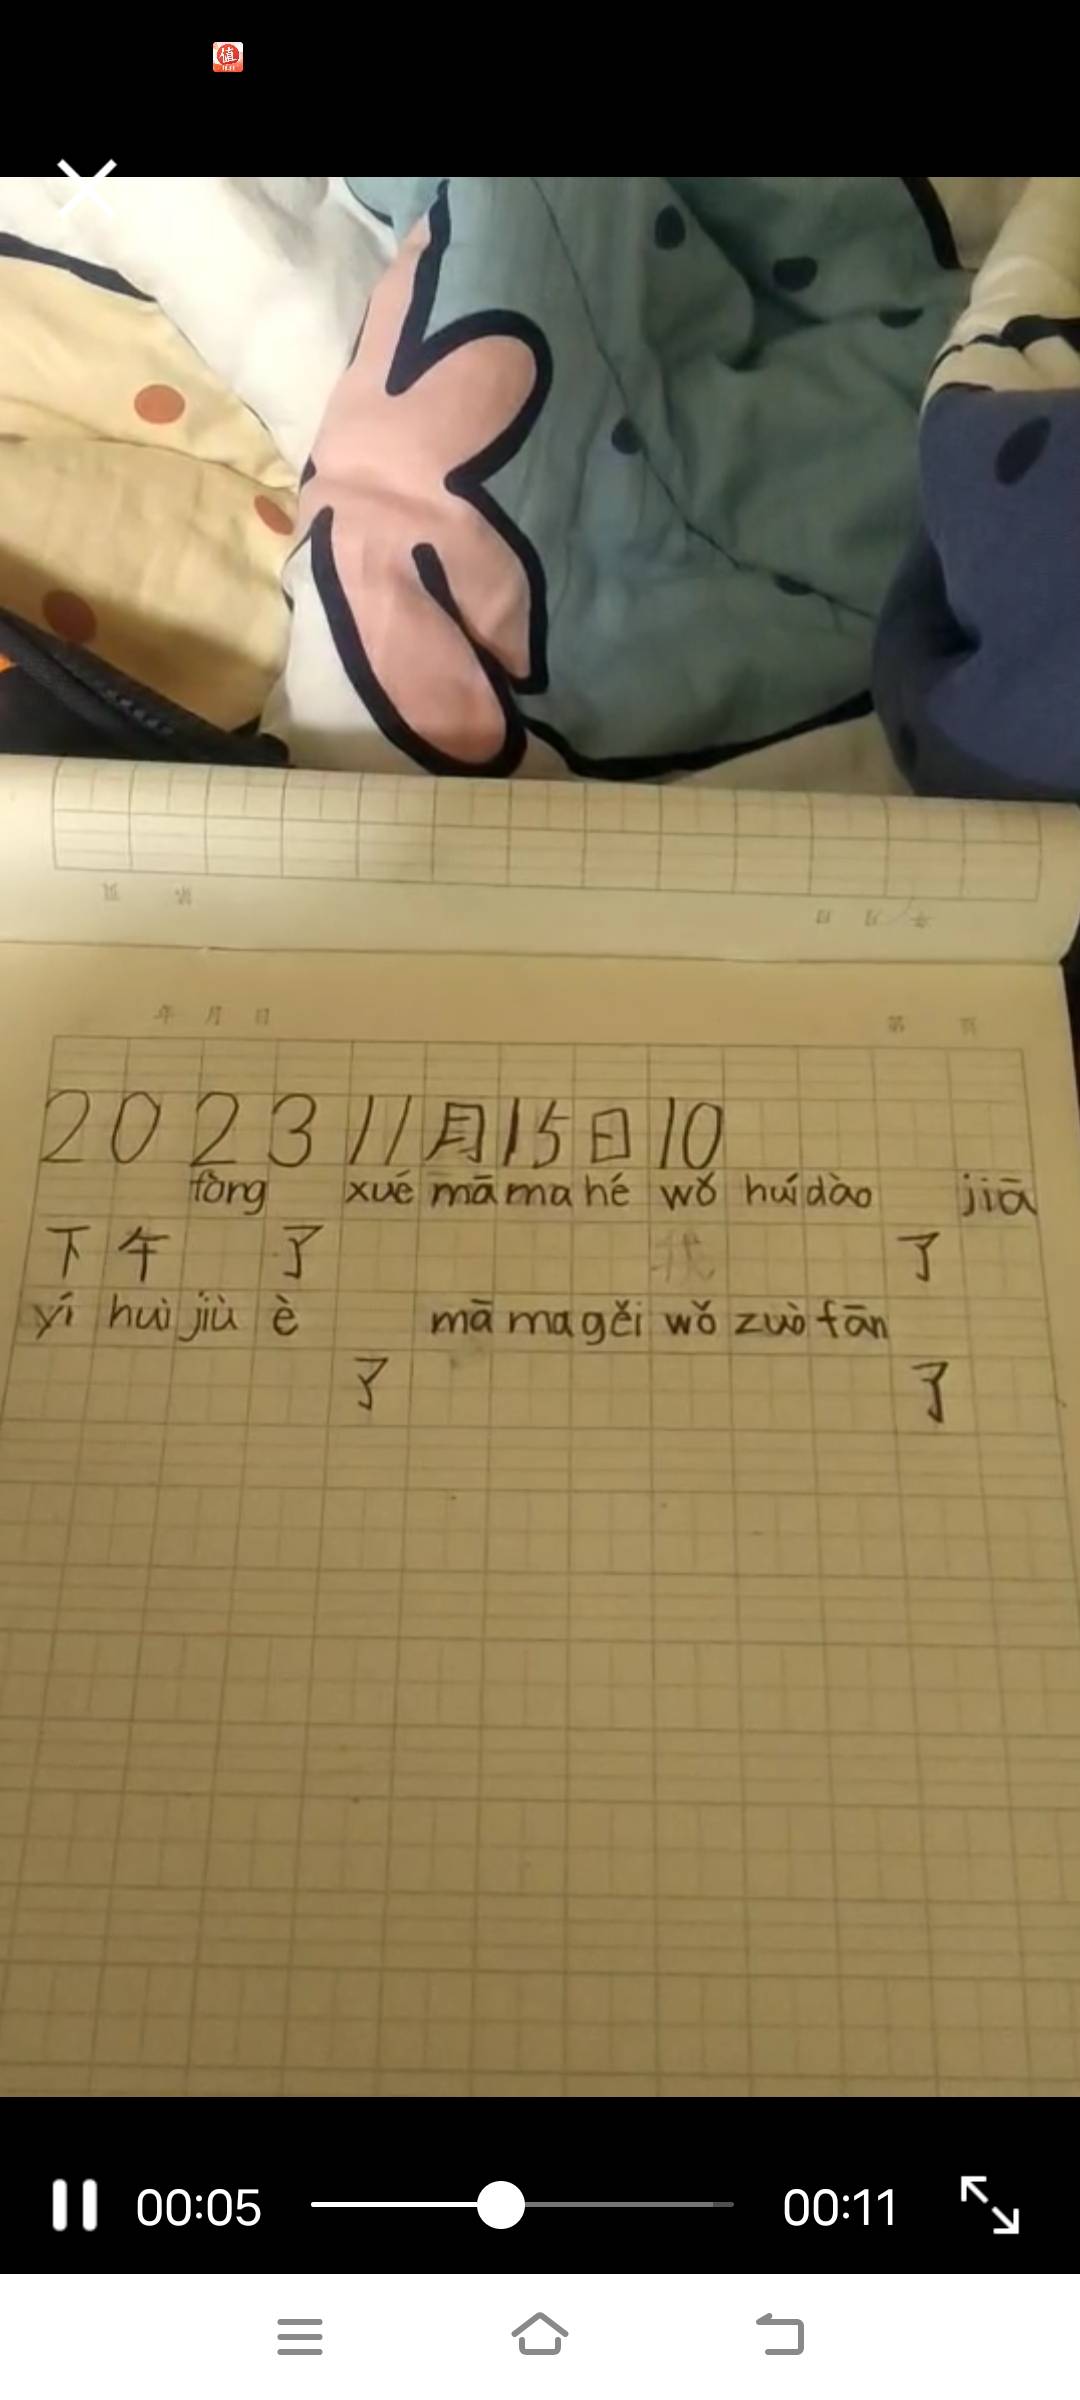 值
年 月 日 第 页
2023 11月15日10
fàng xué mā ma hé wǒ huí dào jiā
下午 了 我 了
yí huì jiù è mā ma gěi wǒ zuò fān
了 了
00:05 00:11